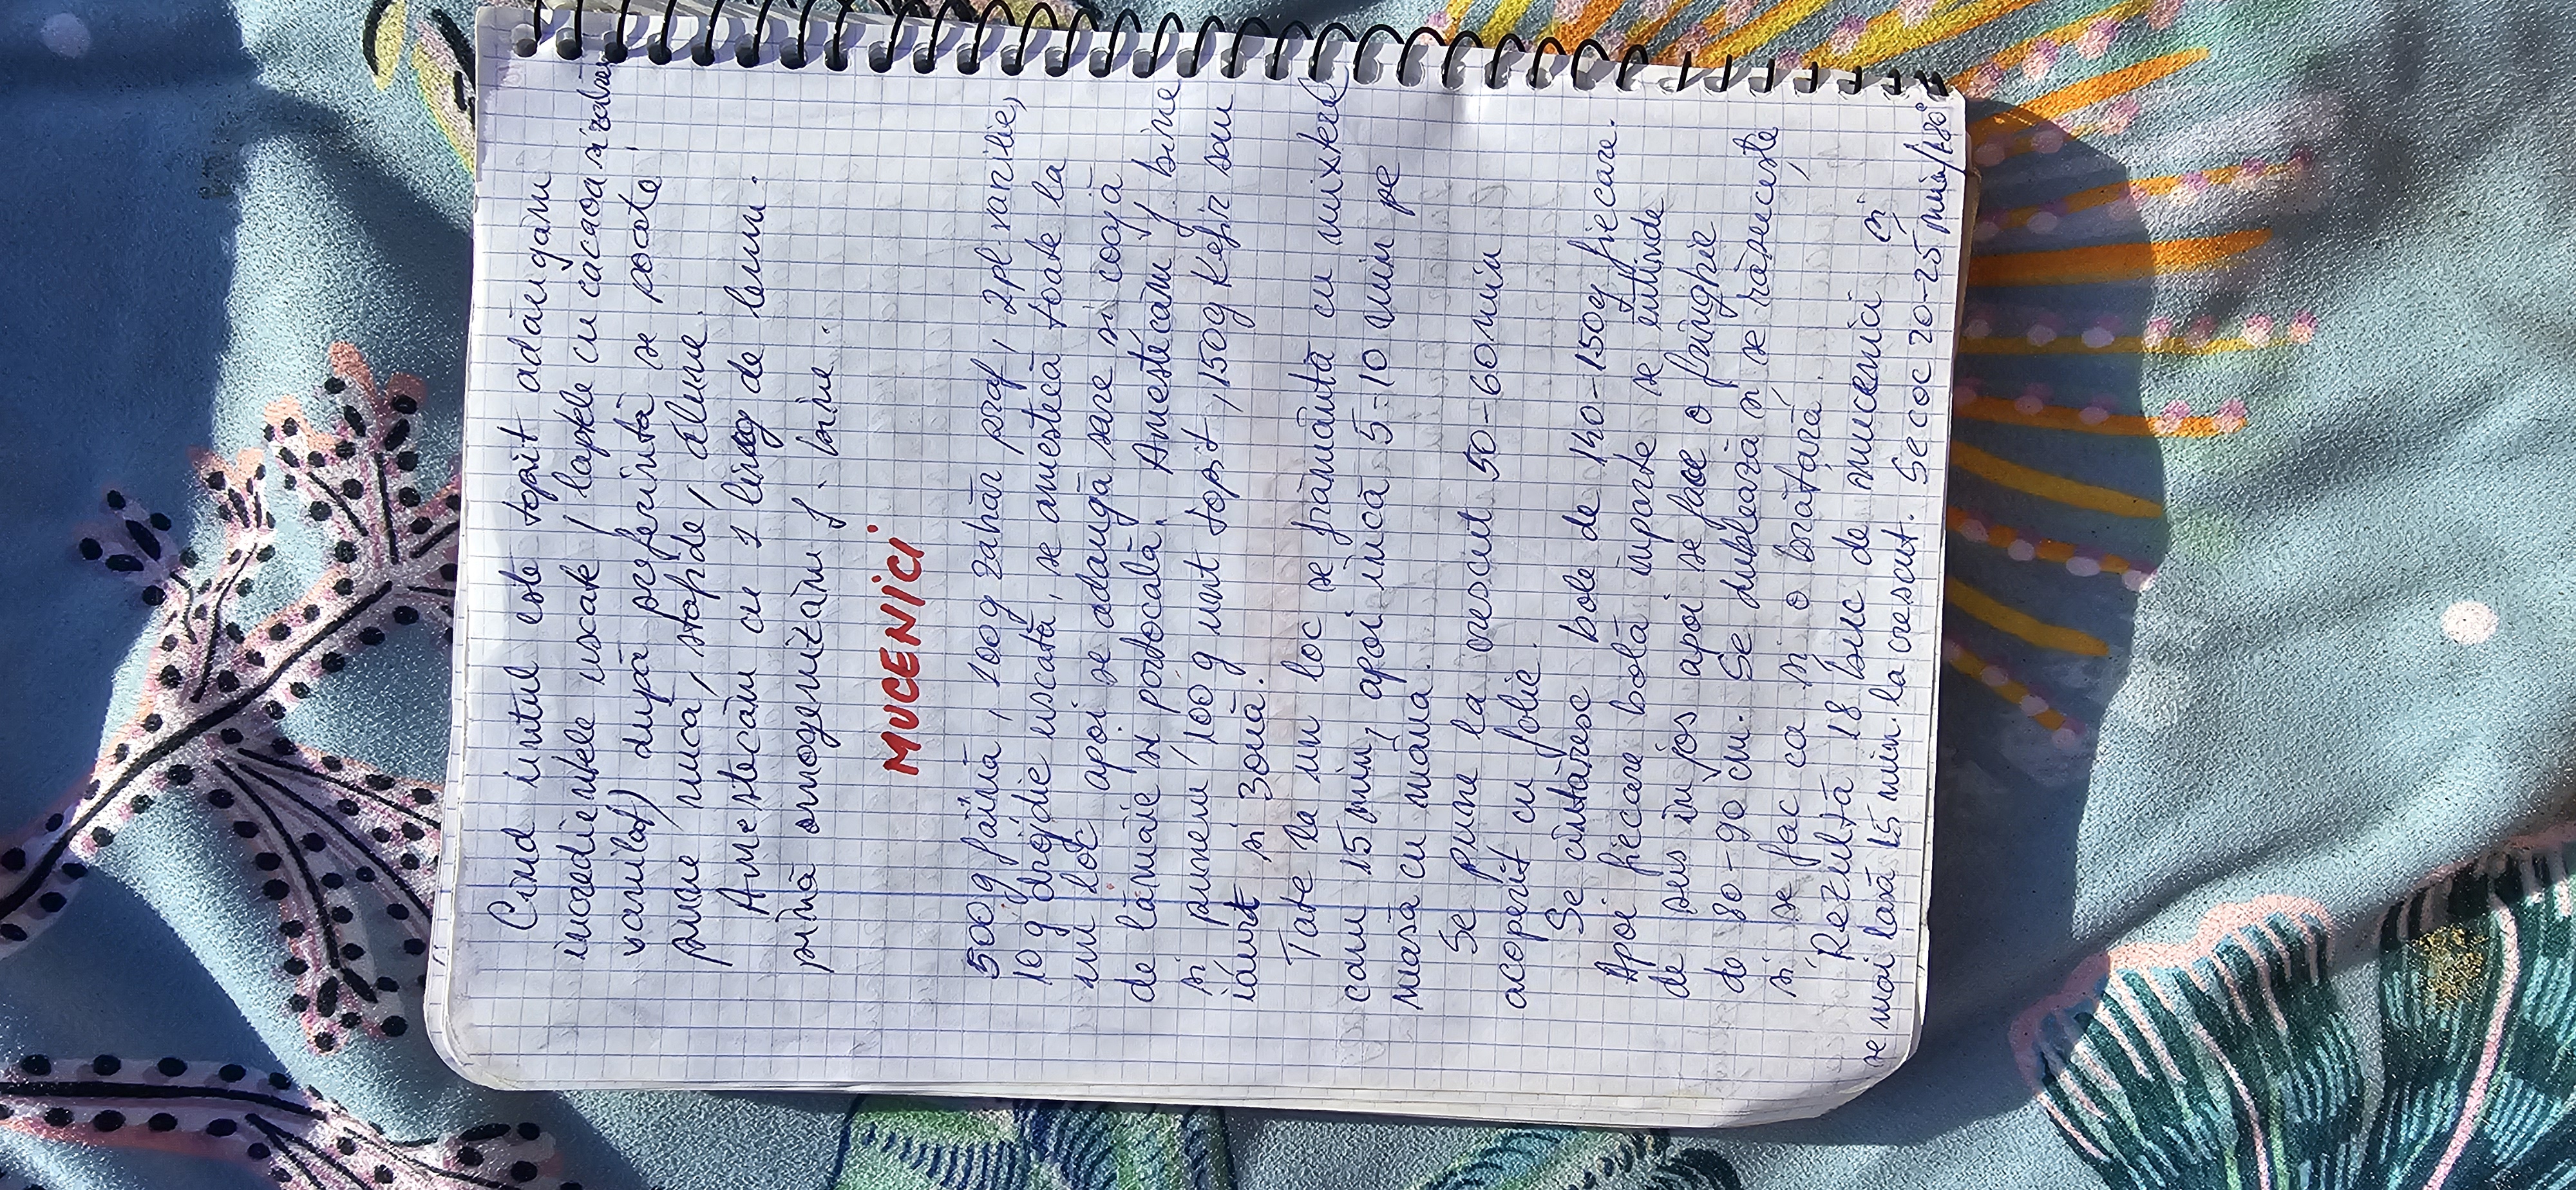 Cînd untul este topit adăugăm
incredientele uscate (laptele cu cacaoa si zahăr
vanilat) după preferintă se poate
pune nucă, stafide, alune.
Amestecăm cu 1 ling de lemn.
pînă omogenizăm f. bine.
MUCENICI
500g făină, 100g zahăr praf, 2pl. vanilie,
10g drojdie uscată, se amestecă toate la
un loc apoi se adaugă sare si coajă
de lămâie si portocală. Amestecăm f. bine
si punem 100g unt topit, 150g Kefir sau
iaurt si 3ouă.
Tate la un loc se frămăntă cu mixterul
cam 15 min, apoi încă 5-10 min pe
masă cu mâna.
Se pune la crescut 50-60 min
acoperit cu folie.
Se cîntăresc bole de 140-150g fiecare.
Apoi fiecare bolă înparte se întinde
de sus în jos apoi se face o frînghie
de 80-90 cm. Se dublează și se răsucește
și se fac ca și o brățară.
Rezultă 18 buc de mucenici și
se mai lasă 15 min. la crescut. Se coc 20-25 min/180°